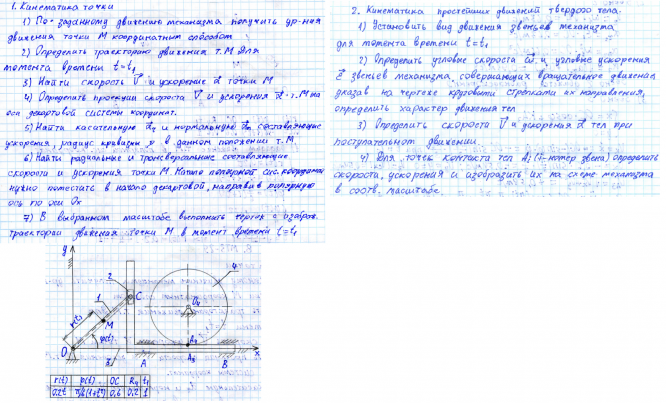 1. Кинематика точки
1) По заданному движению механизма получить ур-ния
движения точки М координатным способом
2) Определить траекторию движения т. М для
момента времени t=t₁
3) Найти скорость V и ускорение a точки М
4) Определить проекции скорости V и ускорения a т. М на
оси декартовой системы координат.
5) Найти касательную aτ и нормальную an составляющие
ускорения, радиус кривизны ρ в данном положении т. М
6) Найти радиальные и трансверсальные составляющие
скорости и ускорения точки М. Начало полярной сис. координат
нужно поместить в начало декартовой, направив полярную
ось по оси Ox
7) В выбранном масштабе выполнить чертеж с изображ.
траектории движения точки М в момент времени t=t₁
2. Кинематика простейших движений твердого тела.
1) Установить вид движения звеньев механизма
для момента времени t=t₁
2) Определить угловые скорости ω и угловые ускорения
ε звеньев механизма, совершающих вращательное движение,
указав на чертеже круговыми стрелками их направления,
определить характер движения тел
3) Определить скорости V и ускорения a тел при
поступательном движении
4) Для точек контакта тел Ai (i-номер звена) определить
скорости, ускорения и изобразить их на схеме механизма
в соотв. масштабе
y
2
4
C
1
O₄
r(t)
M
φ(t)
A₄
O
x
3
A
A₃
B
r(t) φ(t) OC R₄ t₁
0,2t π/8(1+t²) 0,6 0,2 1